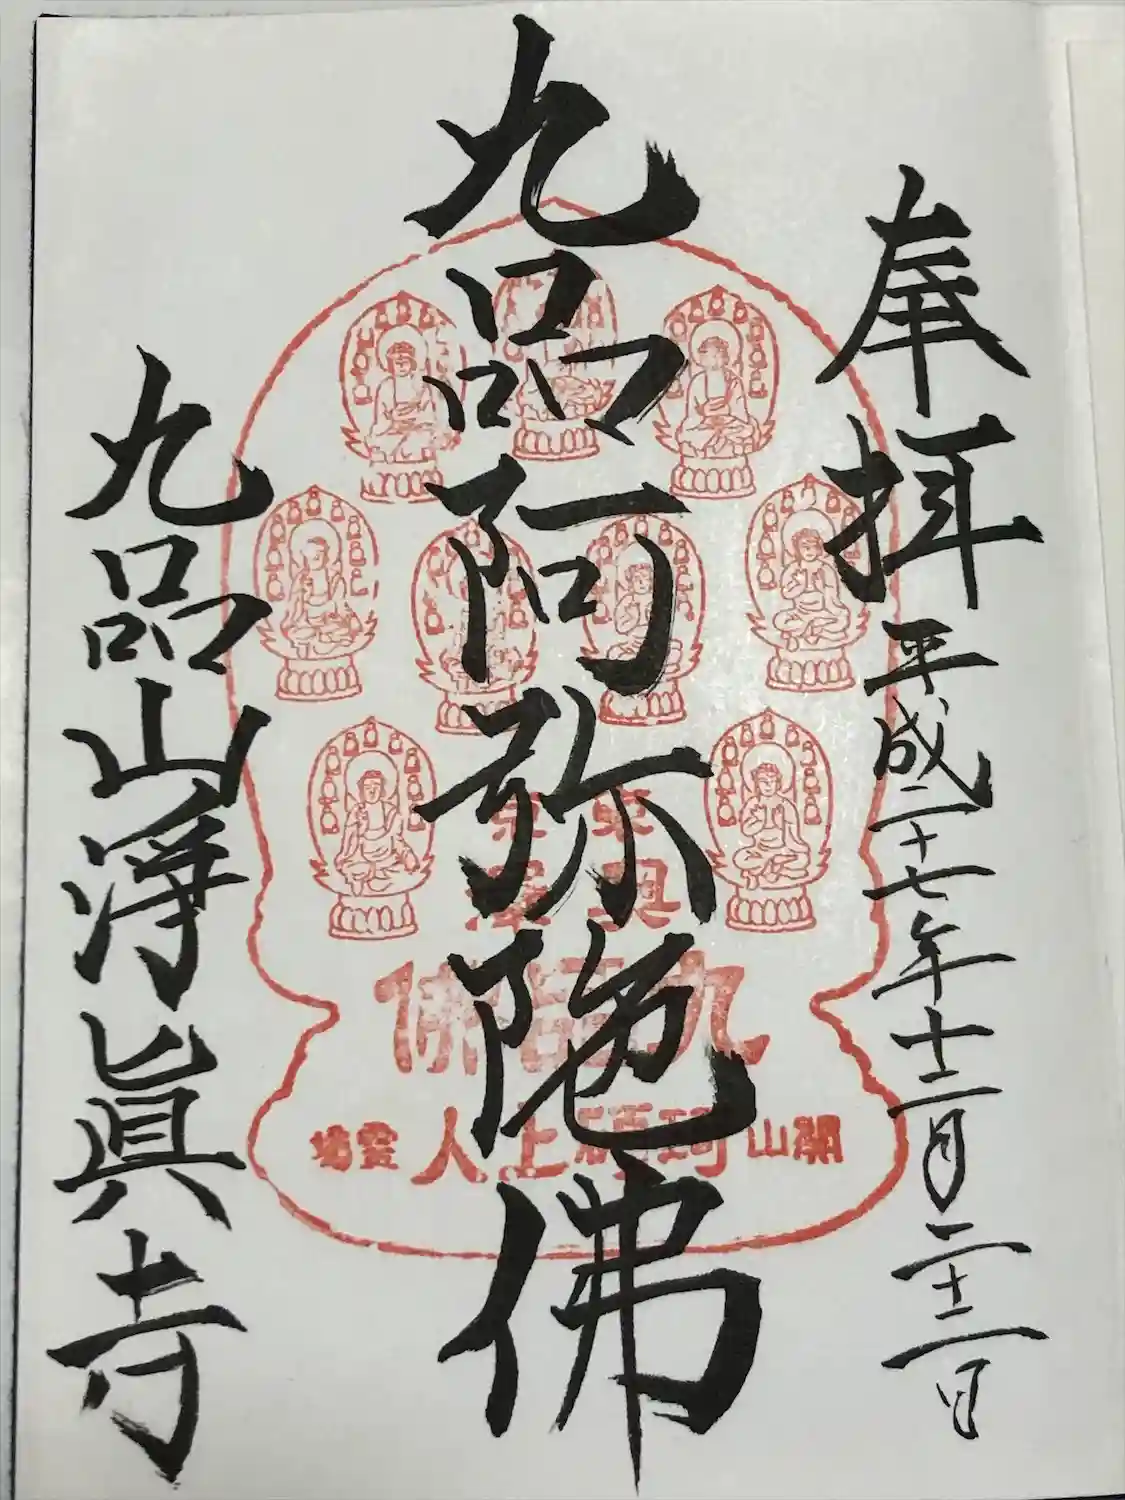 奉拝 平成二十七年十二月二十二日
九品阿弥陀佛
九品山淨眞寺
東京
奥澤
開山珂碩上人霊場